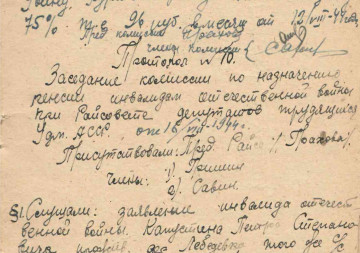 75% т.е. 96 руб. в месяц от 12/VIII-44 г.
Пред комиссии
члены комиссии
Протокол № 10.
Заседание комиссии по назначению
пенсии инвалидам отечественной войны
при Райсовете депутатов трудящихся
Удм. АССР. от 16/VIII-1944г.
Присутствовали: Пред Райсо /Прахова/.
члены: 1) Гришин
2) Савин.
§1. Слушали: заявление инвалида отечест-
венной войны. Капустина Петра Степано-
вича дер Лебедевка того же с/с